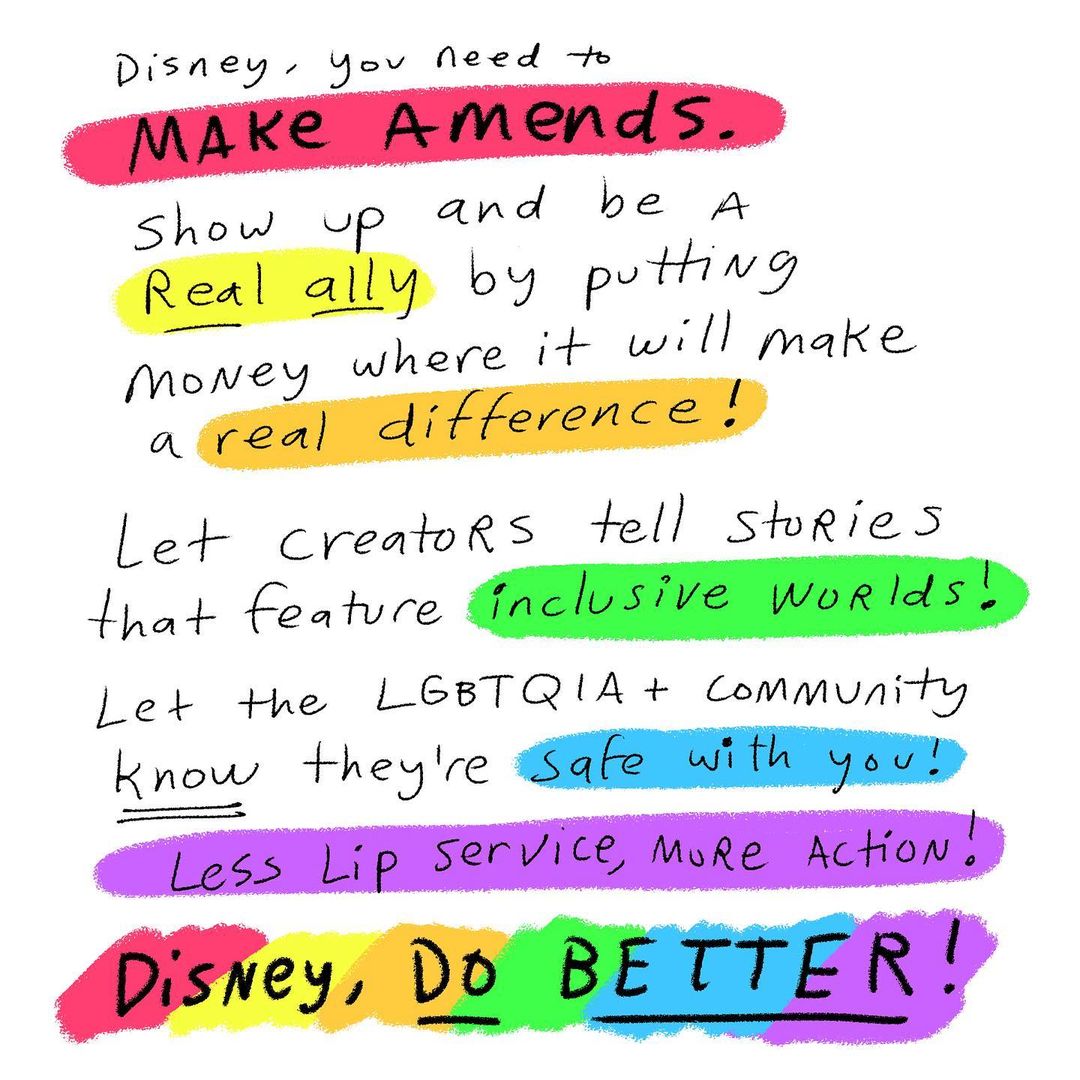 Disney, you need to
MAKe Amends.
Show up and be A
Real ally by puttiNg
MoNey where it will make
a real difference!
Let creatoRS tell stoRies
that feature inclusive WoRlds!
Let the LGBTQIA+ COMMUnity
know they're safe with you!
Less Lip service, MoRe ActioN!
DisNey, DO BETTER!